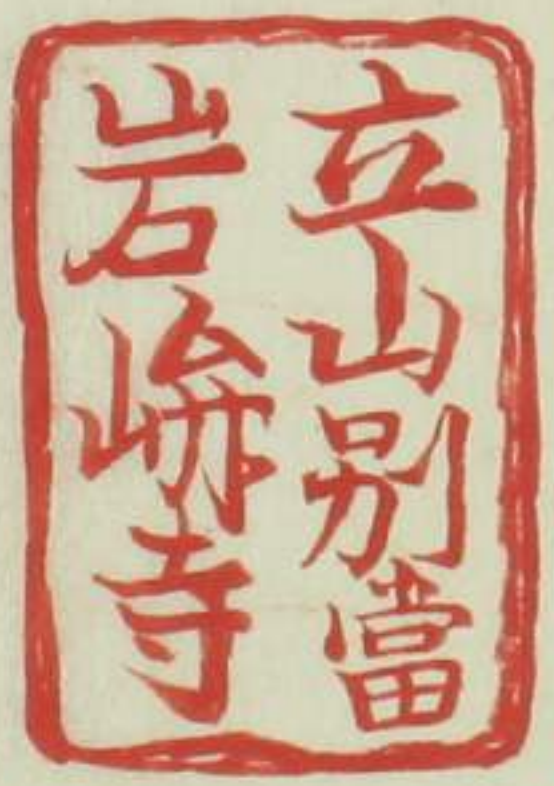 立山別當
岩峅寺